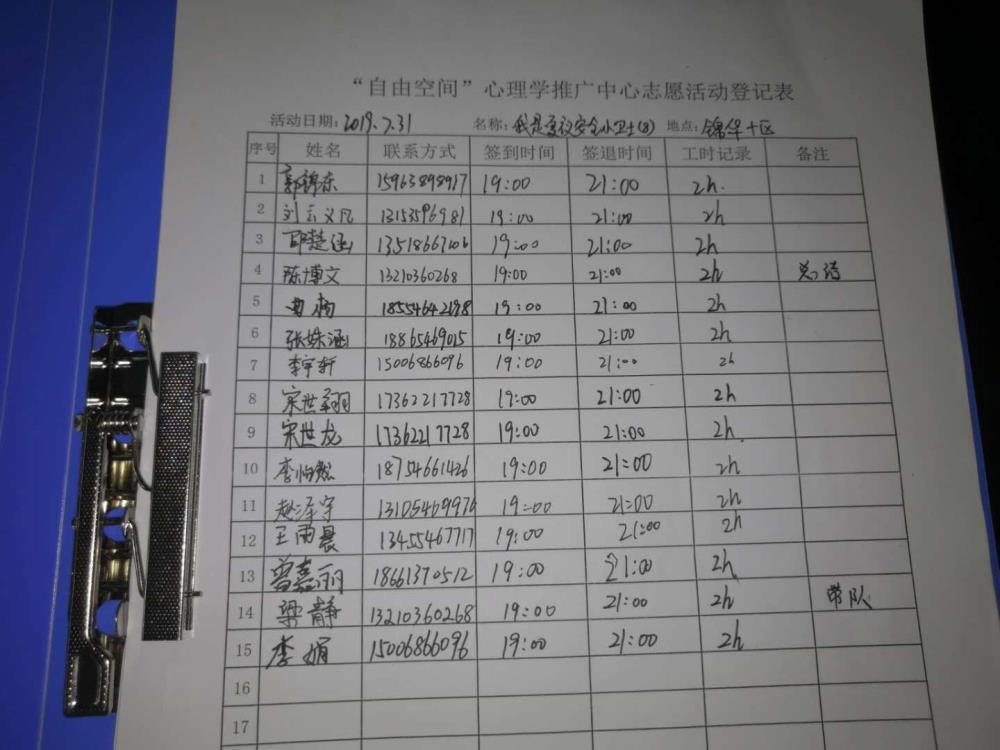 “自由空间”心理学推广中心志愿活动登记表
活动日期: 2019.7.31 名称: 我是爱设安全小卫士(8) 地点: 锦华十区
序号 姓名 联系方式 签到时间 签退时间 工时记录 备注
1 郭锦东 15963898917 19:00 21:00 2h.
2 刘云义凡 13153596981 19:00 21:00 2h
3 邵楚涵 13518667106 19:00 21:00 2h
4 陈博文 13210360268 19:00 21:00 2h 总结
5 曲楠 18554642198 19:00 21:00 2h
6 张姝涵 18865469015 19:00 21:00 2h
7 李宇轩 15006866096 19:00 21:00 2h
8 宋世翔 17362217728 19:00 21:00 2h
9 宋世龙 17362217728 19:00 21:00 2h
10 李怡然 18754661426 19:00 21:00 2h
11 赵泽宇 13105469976 19:00 21:00 2h
12 王雨晨 13455467717 19:00 21:00 2h
13 曾嘉丽 18661370512 19:00 21:00 2h
14 梁静 13210360268 19:00 21:00 2h 带队
15 李娟 15006866096 19:00 21:00 2h
16
17